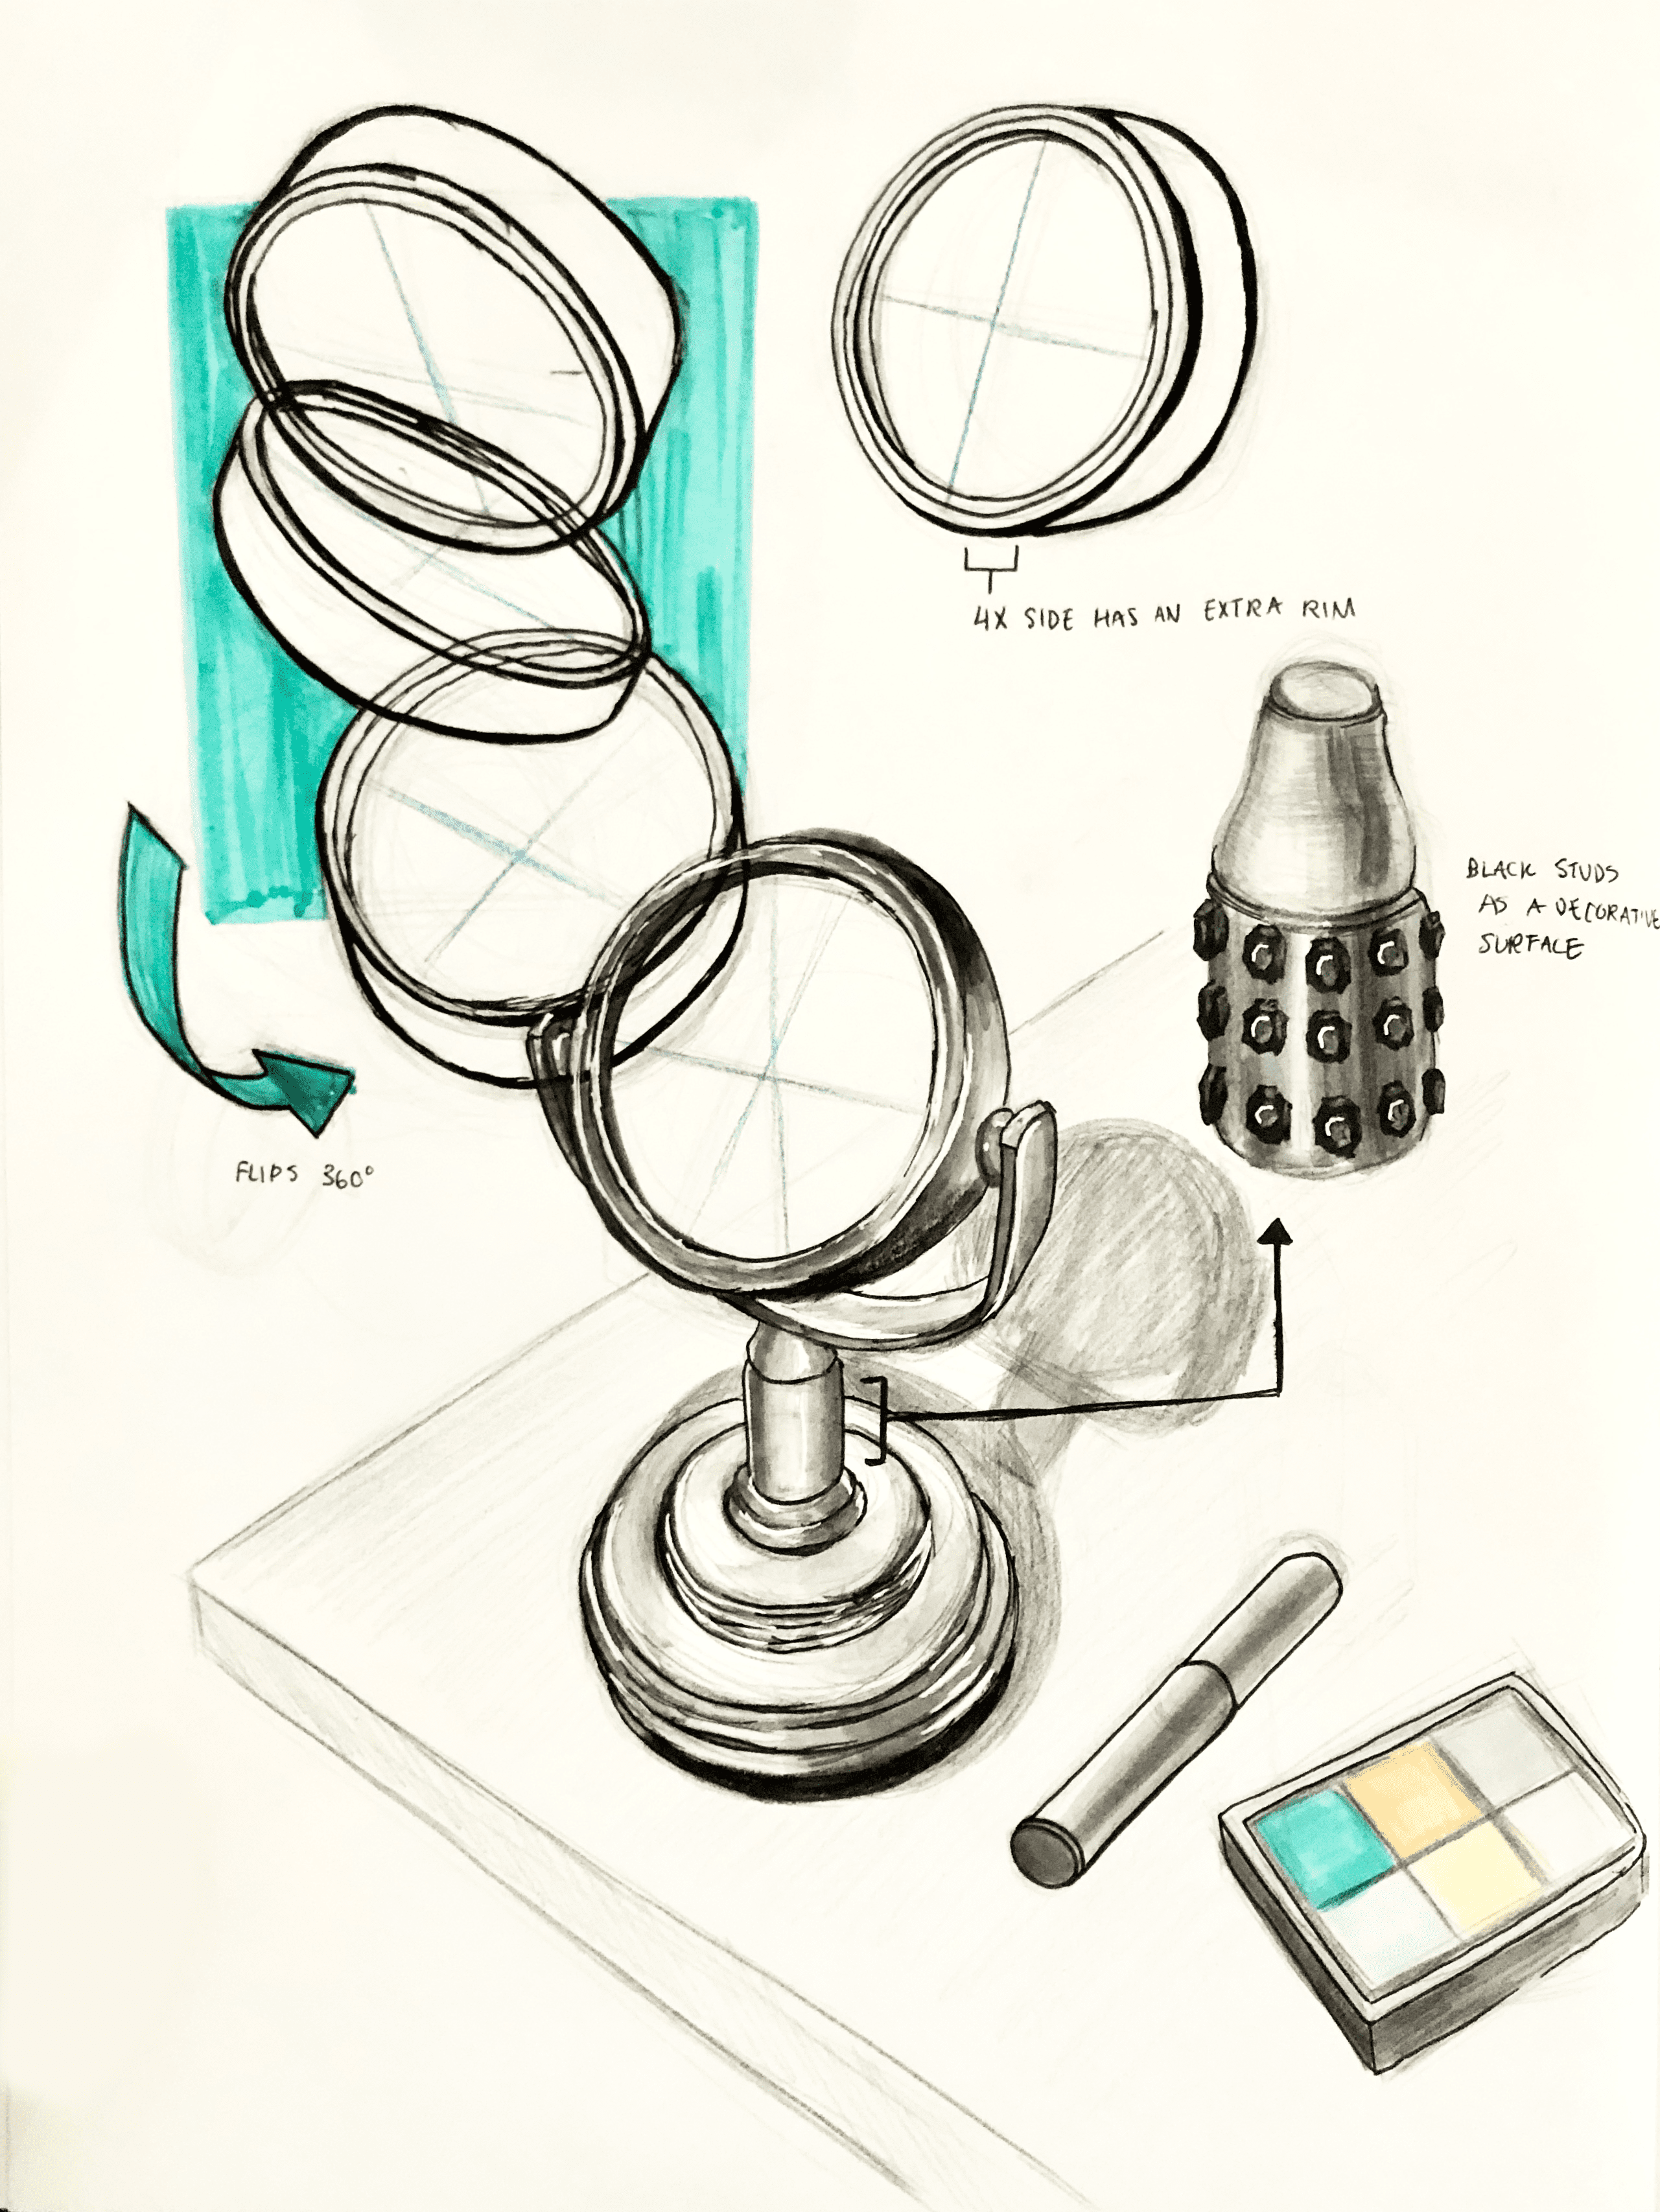 4X SIDE HAS AN EXTRA RIM
BLACK STUDS
AS A DECORATIVE
SURFACE
FLIPS 360°